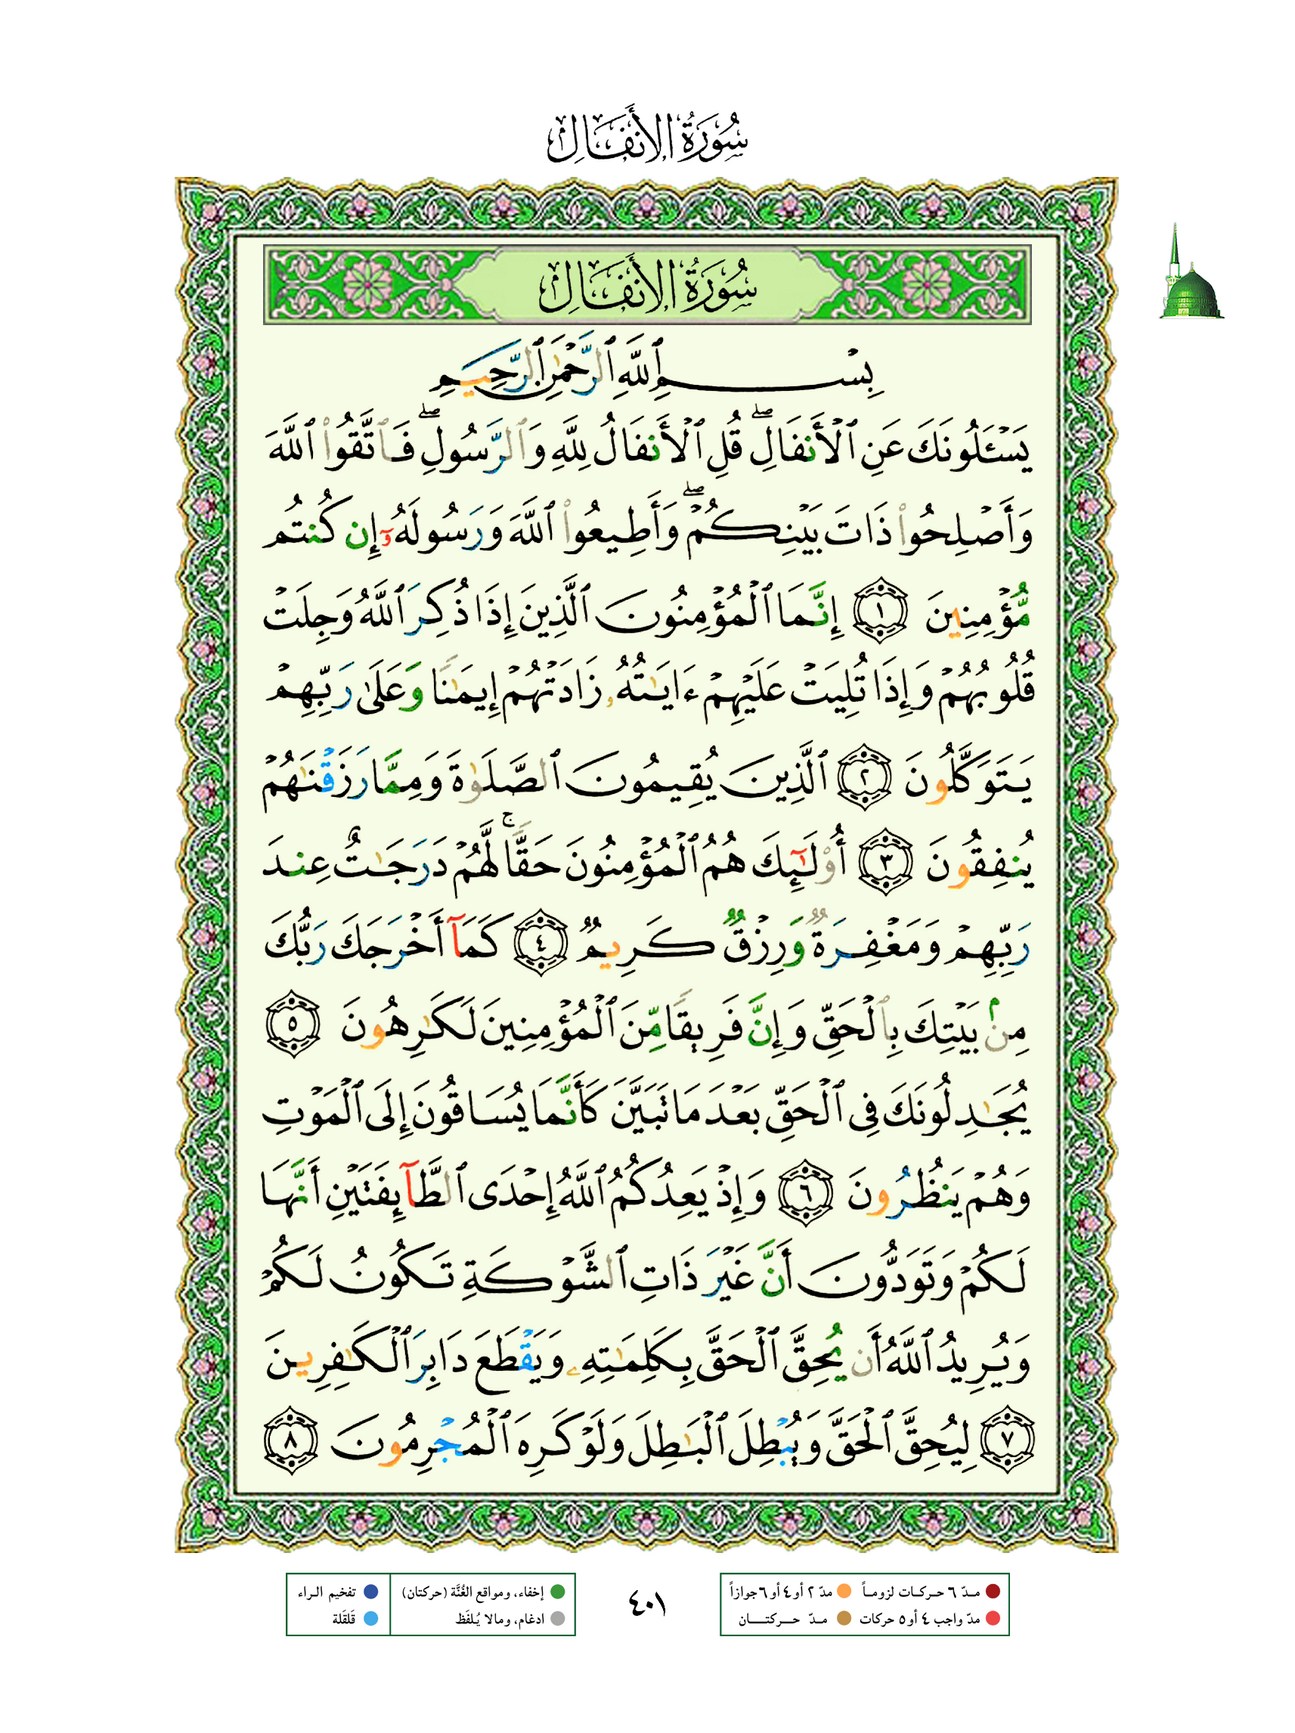 سُورَةُ الأَنفَالِ
سُورَةُ الأَنفَالِ
بِسْمِ ٱللَّهِ ٱلرَّحْمَٰنِ ٱلرَّحِيمِ
يَسْـَٔلُونَكَ عَنِ ٱلْأَنفَالِۖ قُلِ ٱلْأَنفَالُ لِلَّهِ وَٱلرَّسُولِۖ فَٱتَّقُوا۟ ٱللَّهَ
وَأَصْلِحُوا۟ ذَاتَ بَيْنِكُمْۖ وَأَطِيعُوا۟ ٱللَّهَ وَرَسُولَهُۥٓ إِن كُنتُم
مُّؤْمِنِينَ ١ إِنَّمَا ٱلْمُؤْمِنُونَ ٱلَّذِينَ إِذَا ذُكِرَ ٱللَّهُ وَجِلَتْ
قُلُوبُهُمْ وَإِذَا تُلِيَتْ عَلَيْهِمْ ءَايَٰتُهُۥ زَادَتْهُمْ إِيمَٰنًا وَعَلَىٰ رَبِّهِمْ
يَتَوَكَّلُونَ ٢ ٱلَّذِينَ يُقِيمُونَ ٱلصَّلَوٰةَ وَمِمَّا رَزَقْنَٰهُمْ
يُنفِقُونَ ٣ أُو۟لَٰٓئِكَ هُمُ ٱلْمُؤْمِنُونَ حَقًّاۚ لَّهُمْ دَرَجَٰتٌ عِندَ
رَبِّهِمْ وَمَغْفِرَةٌ وَرِزْقٌ كَرِيمٌ ٤ كَمَآ أَخْرَجَكَ رَبُّكَ
مِنۢ بَيْتِكَ بِٱلْحَقِّ وَإِنَّ فَرِيقًا مِّنَ ٱلْمُؤْمِنِينَ لَكَٰرِهُونَ ٥
يُجَٰدِلُونَكَ فِى ٱلْحَقِّ بَعْدَ مَا تَبَيَّنَ كَأَنَّمَا يُسَاقُونَ إِلَى ٱلْمَوْتِ
وَهُمْ يَنظُرُونَ ٦ وَإِذْ يَعِدُكُمُ ٱللَّهُ إِحْدَى ٱلطَّآئِفَتَيْنِ أَنَّهَا
لَكُمْ وَتَوَدُّونَ أَنَّ غَيْرَ ذَاتِ ٱلشَّوْكَةِ تَكُونُ لَكُمْ
وَيُرِيدُ ٱللَّهُ أَن يُحِقَّ ٱلْحَقَّ بِكَلِمَٰتِهِۦ وَيَقْطَعَ دَابِرَ ٱلْكَٰفِرِينَ
٧ لِيُحِقَّ ٱلْحَقَّ وَيُبْطِلَ ٱلْبَٰطِلَ وَلَوْ كَرِهَ ٱلْمُجْرِمُونَ ٨
مدّ ٦ حركات لزوماً مدّ ٢ أو ٤ أو ٦ جوازاً
مدّ واجب ٤ أو ٥ حركات مدّ حركتان
٤٠١
إخفاء، ومواقع الغُنَّة (حركتان) تفخيم الراء
ادغام، ومالا يُلفَظ قلقلة